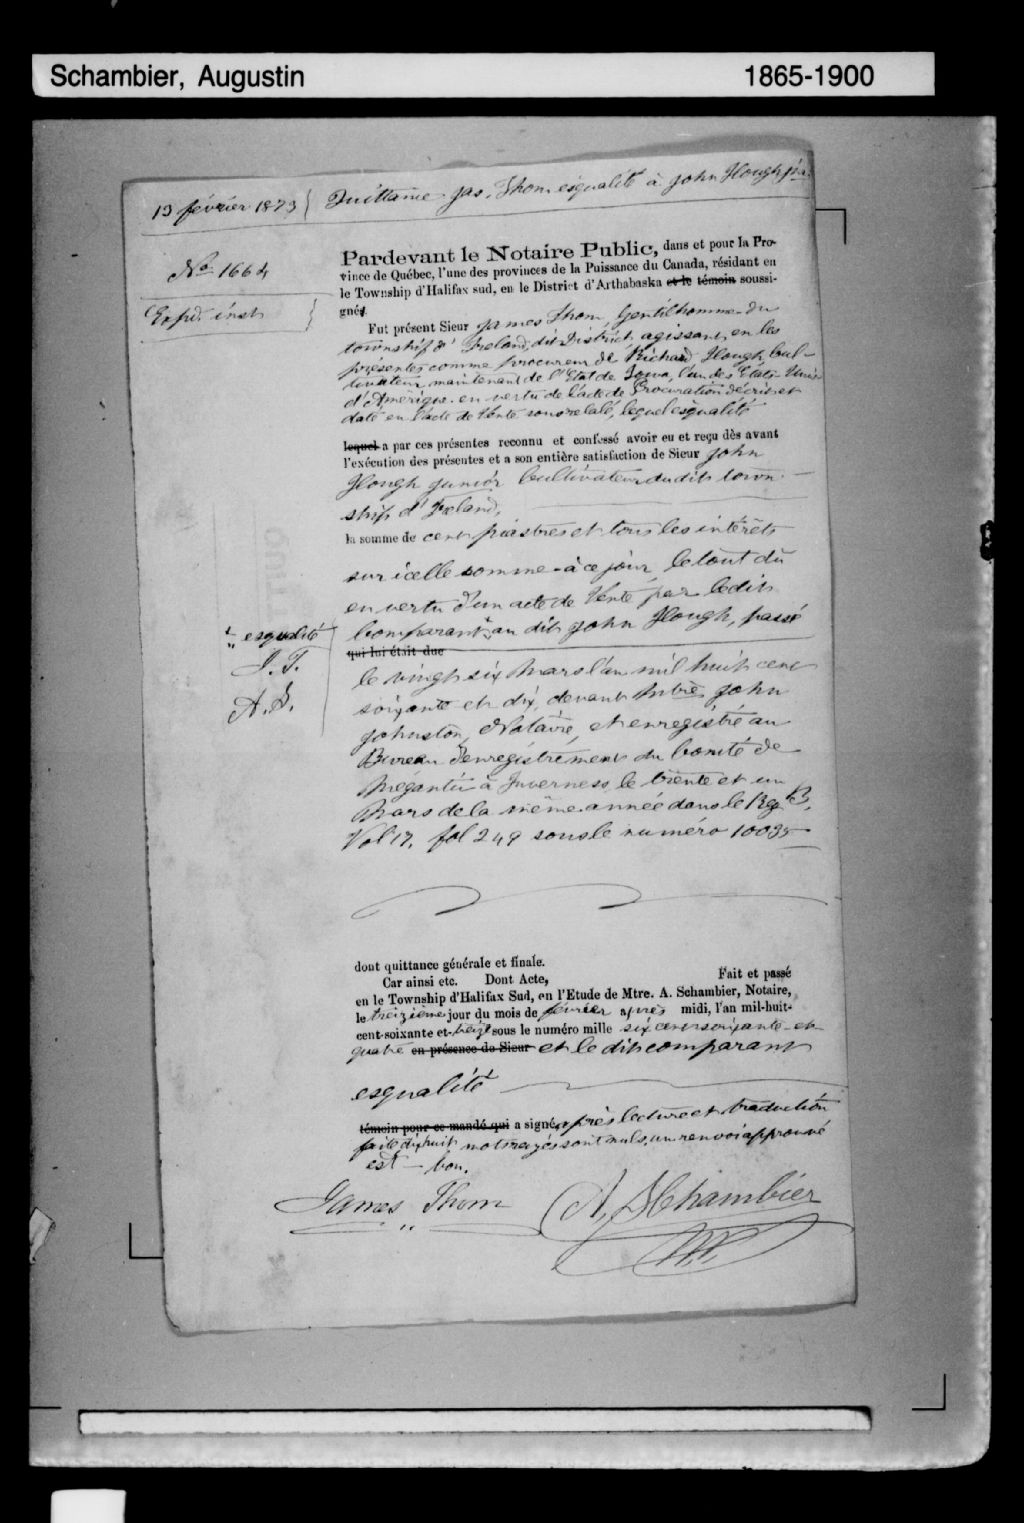 Schambier, Augustin 1865-1900
13 février 1873 Quittance Jas. Thom esqualité à John Hough jr
No 1664
Expd. inst
Pardevant le Notaire Public, dans et pour la Pro-
vince de Québec, l'une des provinces de la Puissance du Canada, résidant en
le Township d'Halifax sud, en le District d'Arthabaska et le témoin soussi-
gné
Fut présent Sieur James Thom, Gentilhomme du
township d'Ireland, dit District, agissant en les
présentes comme procureur de Richard Hough, Cul-
tivateur, maintenant de l'Etat de Iowa, l'un des Etats-Unis
d'Amérique en vertu de l'acte de Procuration décrit et
daté en l'acte de Vente sous relaté, lequel esqualité
lequel a par ces présentes reconnu et confessé avoir eu et reçu dès avant
l'exécution des présentes et a son entière satisfaction de Sieur John
Hough junior Cultivateur du dit town-
ship d'Ireland,
la somme de cent piastres et tous les intérêts
sur icelle somme à ce jour, le tout dû
en vertu d'un acte de Vente par le dit
Comparant au dit John Hough, passé
esqualité
J. T.
A. S.
qui lui était due
le vingt six Mars l'an mil huit cent
soixante et dix, devant Mtre John
Johnston, Notaire, et enregistré au
Bureau d'enregistrement du Comté de
Mégantic à Inverness, le trente et un
Mars de la même année dans le Reg. B,
Vol 17, fol 249 sous le numéro 10035
dont quittance générale et finale.
Car ainsi etc. Dont Acte, Fait et passé
en le Township d'Halifax Sud, en l'Etude de Mtre. A. Schambier, Notaire,
le treizième jour du mois de février après midi, l'an mil-huit-
cent-soixante et-treize sous le numéro mille six cent soixante et
quatre en présence de Sieur et le dit comparant
esqualité
témoin pour ce mandé qui a signé, après lecture et traduction
faite, dix huit mots rayés sont nuls, un renvoi approuvé
est bon.
James Thom A. Schambier
N.P.